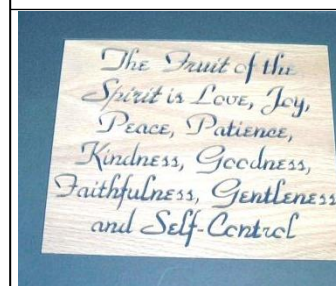 The Fruit of the
Spirit is Love, Joy,
Peace, Patience,
Kindness, Goodness,
Faithfulness, Gentleness
and Self-Control